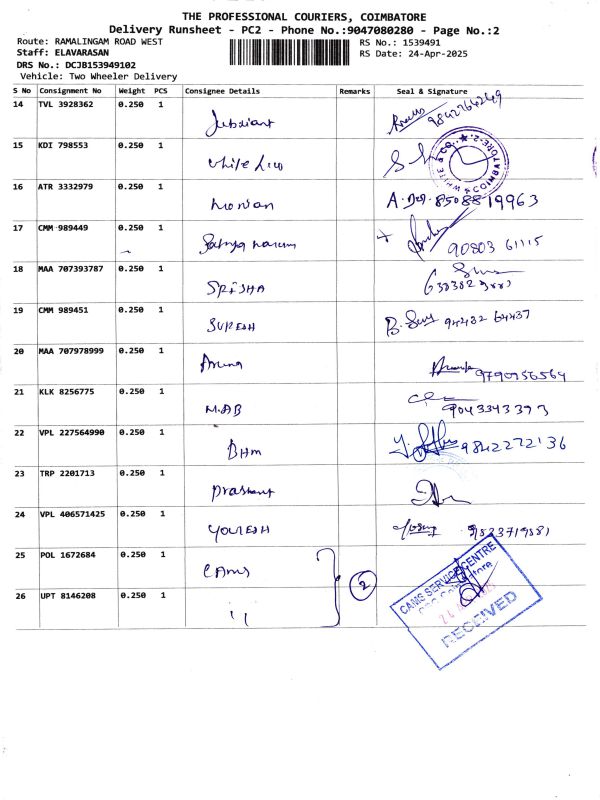 THE PROFESSIONAL COURIERS, COIMBATORE
Delivery Runsheet - PC2 - Phone No.:9047080280 - Page No.:2
Route: RAMALINGAM ROAD WEST
RS No.: 1539491
Staff: ELAVARASAN
RS Date: 24-Apr-2025
DRS No.: DCJB153949102
Vehicle: Two Wheeler Delivery
S No Consignment No Weight PCS Consignee Details Remarks Seal & Signature
14 TVL 3928362 0.250 1
15 KDI 798553 0.250 1 White & Co
16 ATR 3332979 0.250 1 8508819963
17 CMM 989449 0.250 1 90803 61115
18 MAA 707393787 0.250 1 SPISHA
19 CMM 989451 0.250 1 SURESH 94432 64437
20 MAA 707978999 0.250 1 Aruna
21 KLK 8256775 0.250 1 MAB 9043343393
22 VPL 227564990 0.250 1 BHM 9842272136
23 TRP 2201713 0.250 1 Prashant
24 VPL 406571425 0.250 1 YOGESH
25 POL 1672684 0.250 1 CAMS
26 UPT 8146208 0.250 1 "
2
CAMS SERVICE CENTRE
RECEIVED